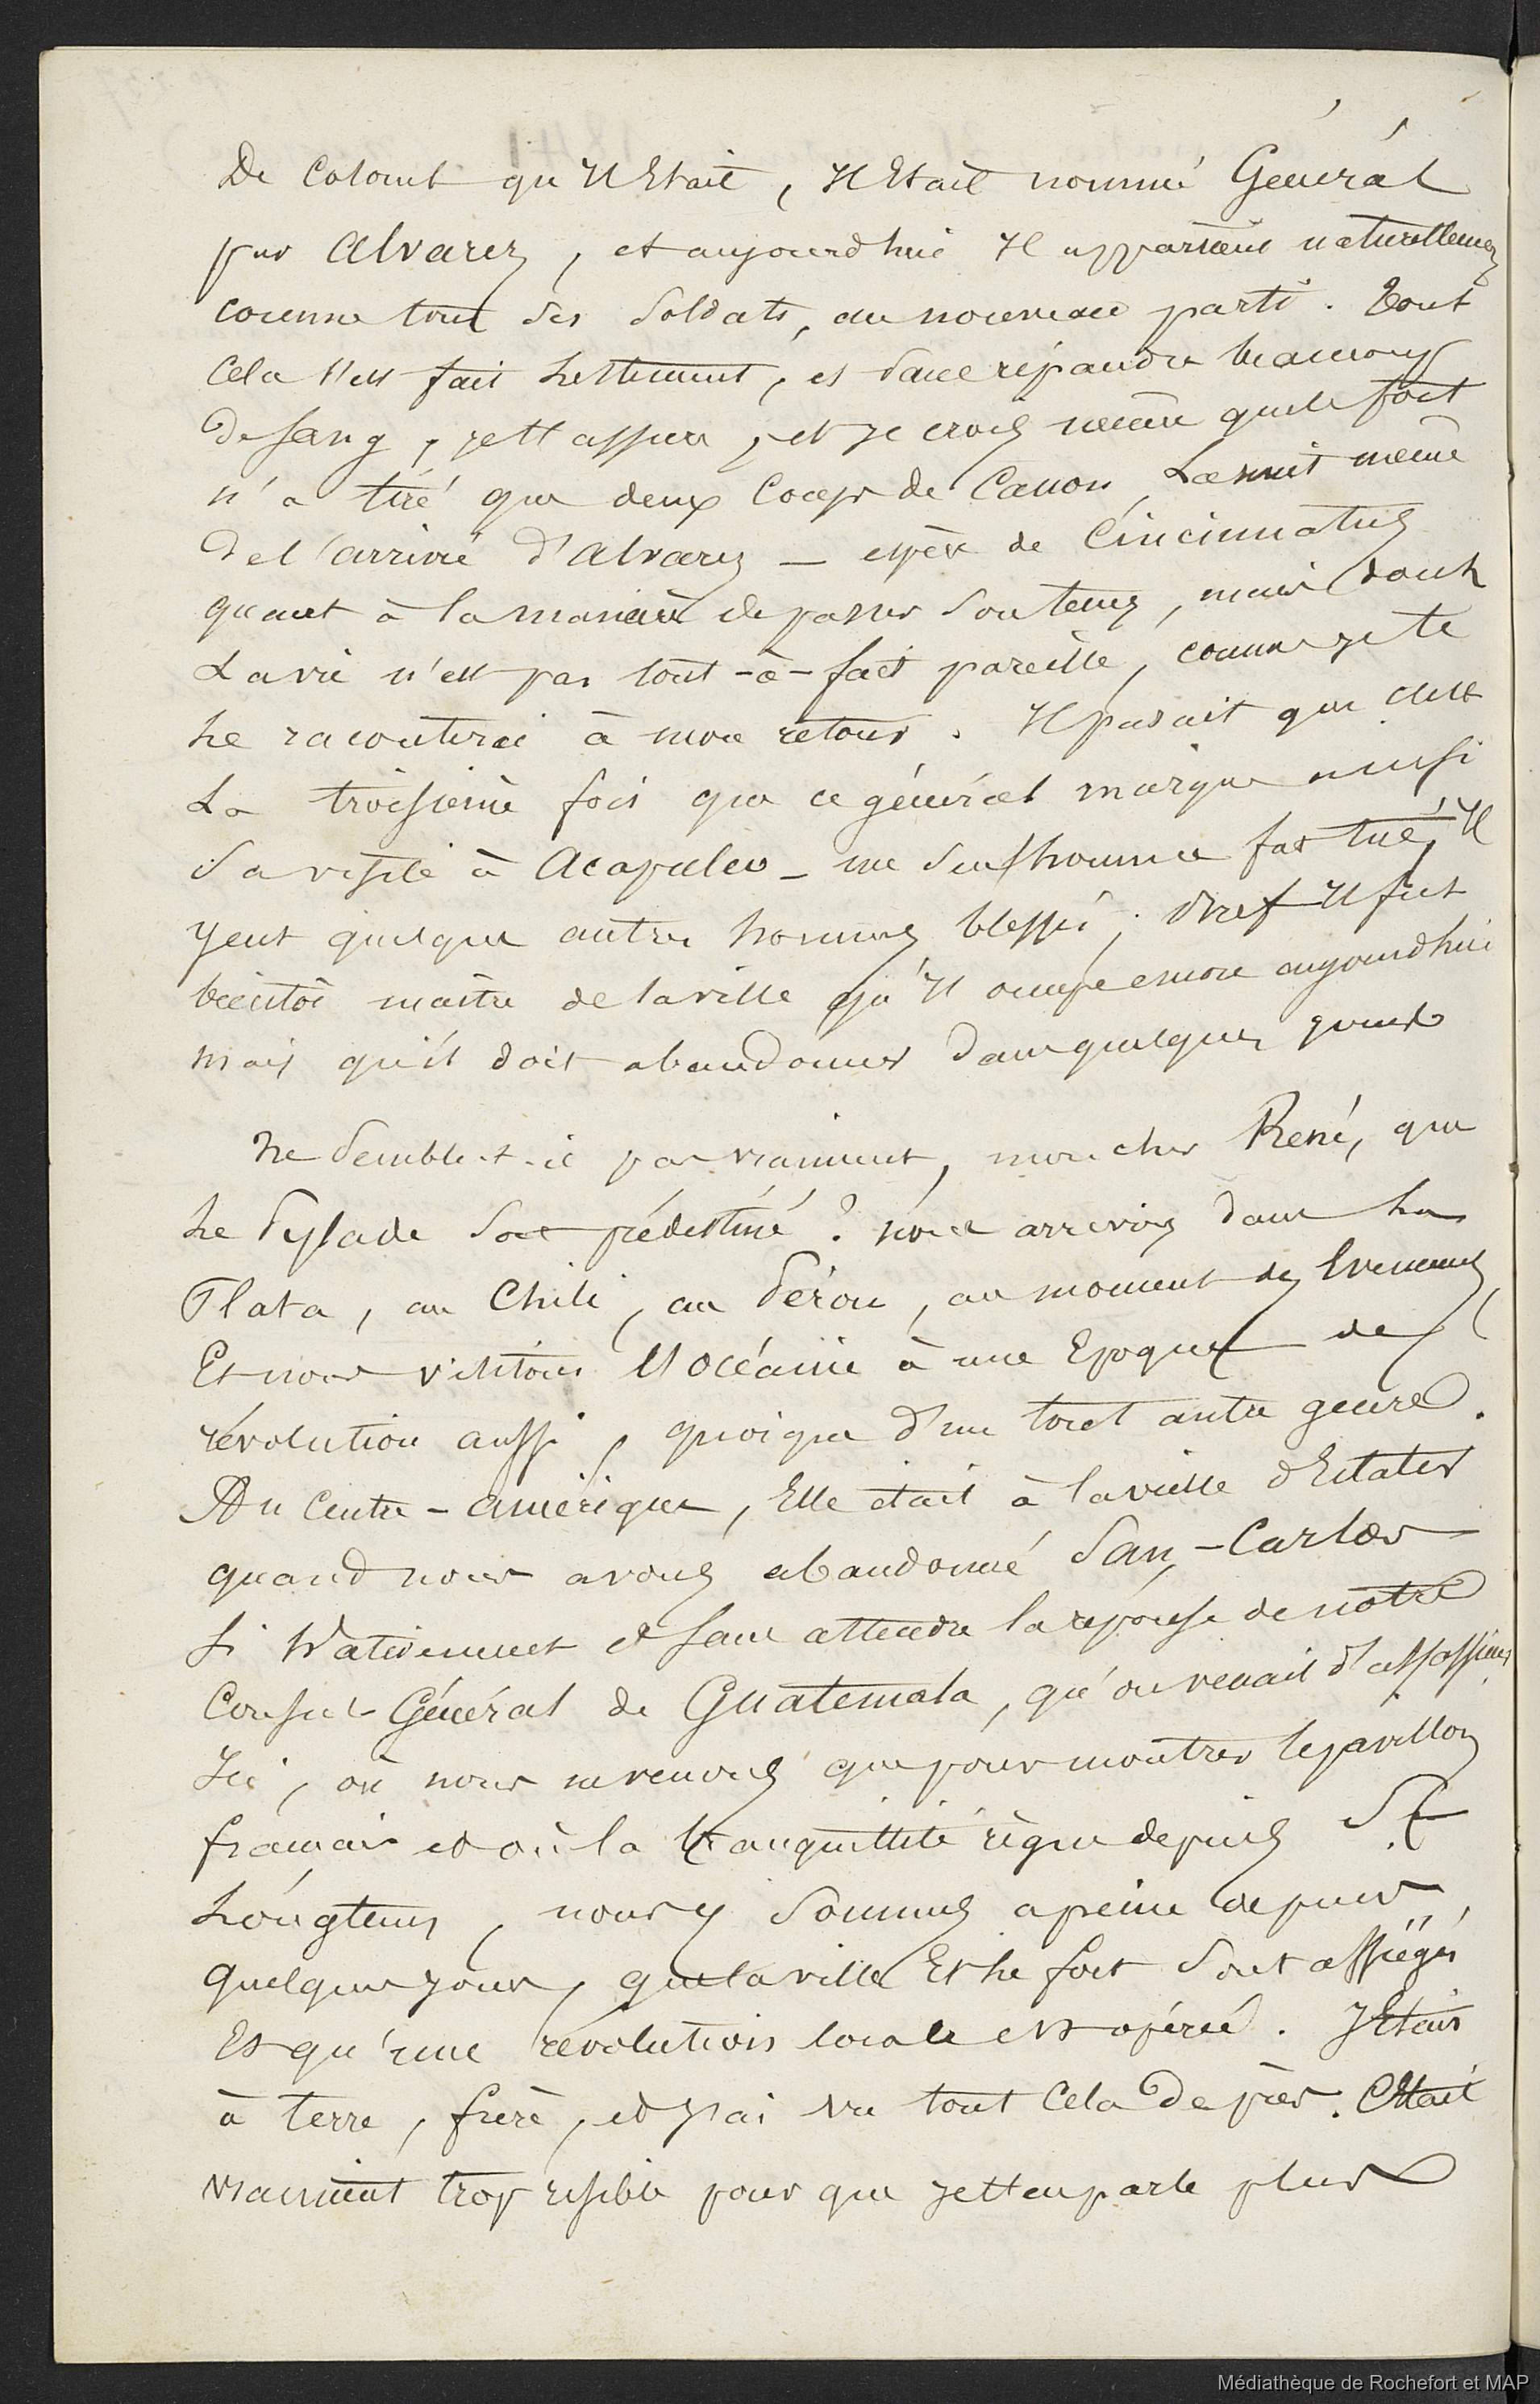 De Colonel qu'Il Etait, Il Etait nommé Général
par Alvarez, et aujourd'hui Il appartient naturellement
comme tout ses soldats, au nouveau parti. Tout
Cela s'est fait lestement, et sans répandre beaucoup
de sang, je t'assure, et je crois même que le fort
n'a tiré que deux Coups de Canon, La nuit même
de l'arrivé d'Alvarez _ espèce de Cincinnatus
quant à la manière de passer son tems, mais dont
La vie n'est pas tout-à-fait pareille, comme je te
le raconterai à mon retour. Il parait que c'est
La troisième fois que ce général marque ainsi
sa visite à Acapulco _ un seul homme fut tué, Il
y eut quelque autres hommes blessés; Bref Il fut
bientôt maître de la ville qu'Il occupe encore aujourd'hui
mais qu'il doit abandonner dans quelques jours
Ne semble-t-il pas vraiment, mon cher René, que
le Pylade soit prédestiné? nous arrivons dans La
Plata, au Chili, au Pérou, au moment des Evènemens,
Et nous visitons l'Océanie à une Epoque de
révolution aussi, quoique d'un tout autre genre.
Au Centre-amérique, Elle était à la veille d'Eclater
quand nous avons abandonné San-Carlos
si hativement et sans attendre la réponse de notre
Consul-Général de Guatemala, qu'on venait d'assassiner
Ici, où nous ne venons que pour montrer le pavillon
français et où la tranquillité règne depuis si
longtems, nous y sommes a peine depuis
quelques jours, que la ville Et le fort sont assiégés
Et qu'une révolution locale est opérée. J'Etais
à terre, frère, et j'ai vu tout Cela de près. C'Etait
vraiment trop risible pour que je t'en parle plus